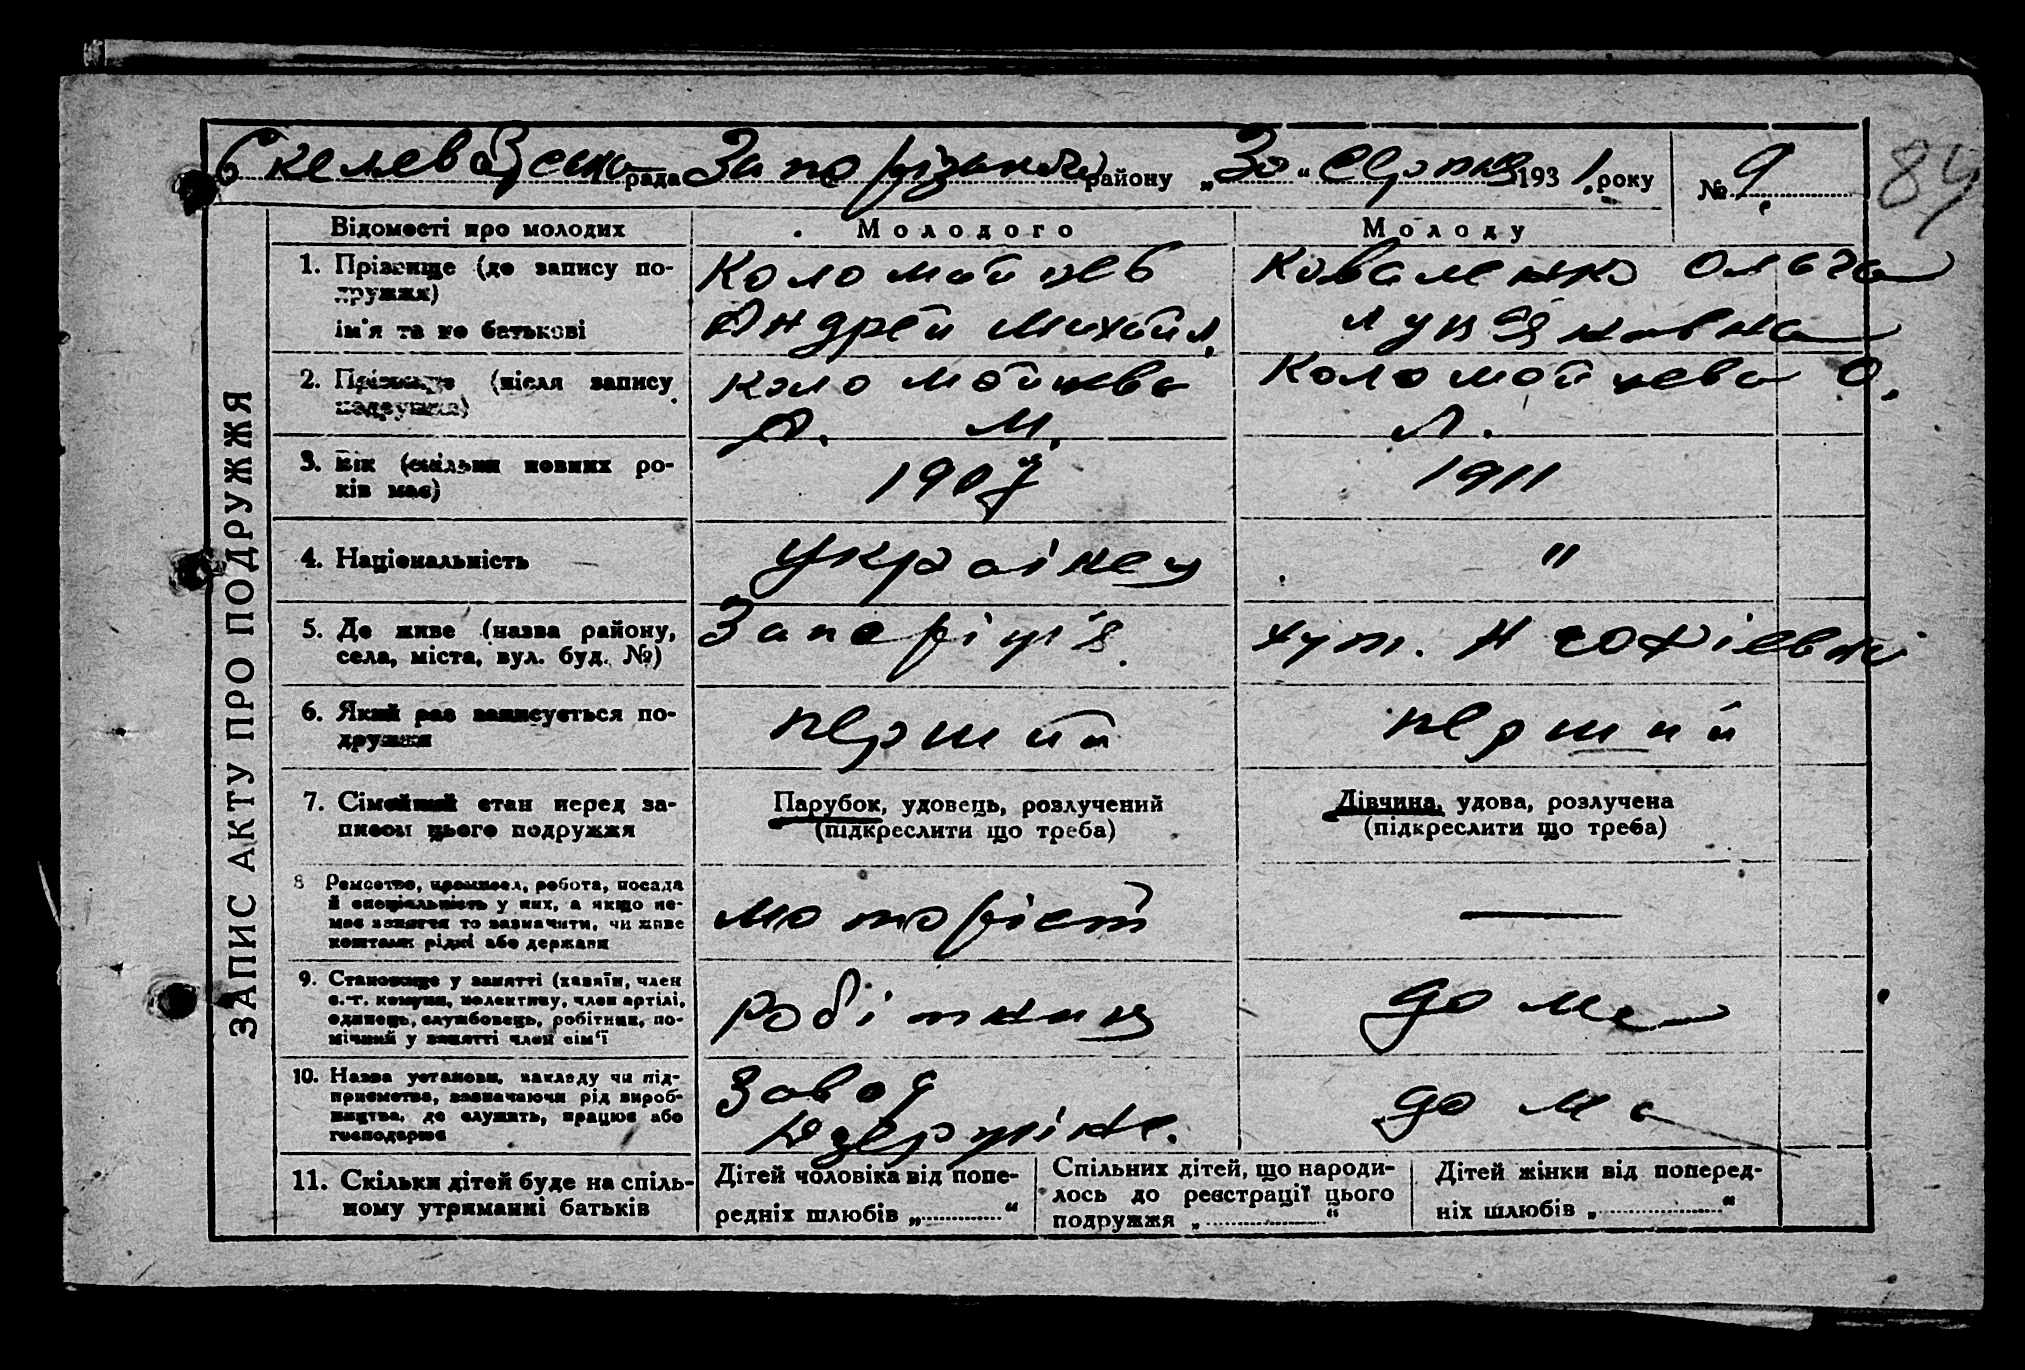 Скелевацска рада Запоріжанського району „30“ серпня 1931. року № 9.
84
ЗАПИС АКТУ ПРО ПОДРУЖЖЯ
Відомості про молодих
Молодого
Молоду
1. Прізвище (до запису подружжя)
ім'я та по батькові
Коломойцев
Андрей Михайл.
Коваленко Ольга
Лукяновна
2. Прізвище (після запису
подружжя)
Коломойцева
А. М.
Коломойцева О.
Л.
3. Вік (скільки повних ро-
ків має)
1907
1911
4. Національність
українец
"
5. Де живе (назва району,
села, міста, вул. буд. №)
Запоріжя.
хут. Н софіевкі
6. Який раз записується по-
дружжя
перший
перший
7. Сімейний стан перед за-
писом цього подружжя
Парубок, удовець, розлучений
(підкреслити що треба)
Дівчина, удова, розлучена
(підкреслити що треба)
8 Ремество, промисел, робота, посада
й спеціальність у них, а якщо не-
має заняття то зазначити, чи живе
коштами рідні або держави
моторіст
—
9. Становище у занятті (хазяїн, член
с.-г. комуни, колективу, член артілі,
одинець, службовець, робітник, по-
мічний у занятті член сім'ї
робітниц
дома
10. Назва установи, закладу чи під-
приємства, зазначаючи рід вироб-
ництва, де служить, працює або
господарює
завод
Дзержінс.
дома
11. Скільки дітей буде на спіль-
ному утриманні батьків
Дітей чоловіка від попе-
редніх шлюбів „............“
Спільних дітей, що народи-
лось до реєстрації цього
подружжя „............“
Дітей жінки від поперед-
ніх шлюбів „............“